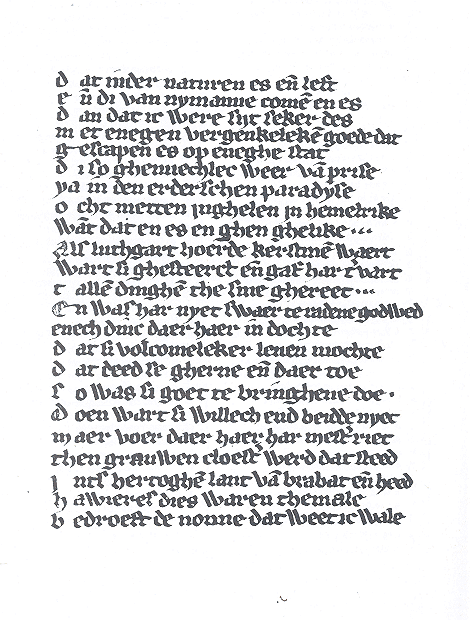 d at nider naturen es eñ lest
e ñ di van nymanne comē en es
d an dat ic were sijt seker des
m et enegen vergenkelekē goede dat
g escapen es op eneghe stat
d i so ghenuechlec weer vā prise
ya in den erderschen paradyse
o cht metten inghelen in hemelrike
Wāt dat en es en ghen ghelike...
Als luthgart hoerde kerstinē waert
Wart si ghesteerct eñ gaf har t' vart
t allē dinghē the sine ghereet...
En was har nyet swaer te midene godwed
enech dinc daer haer in dochte
d at si volcomeleker leuen mochte
d at deed se gherne eñ daer toe
s o was si goet te bringhene doe.
d oen wart si willech eud beidde nyet
m aer voer daer haer har mest' riet
then grauwen cloest' werd dat steed
i nts hertoghē lant vā brabāt eñ heed
h awieres dies waren themale
b edroeft de nonne dat weet ic wale